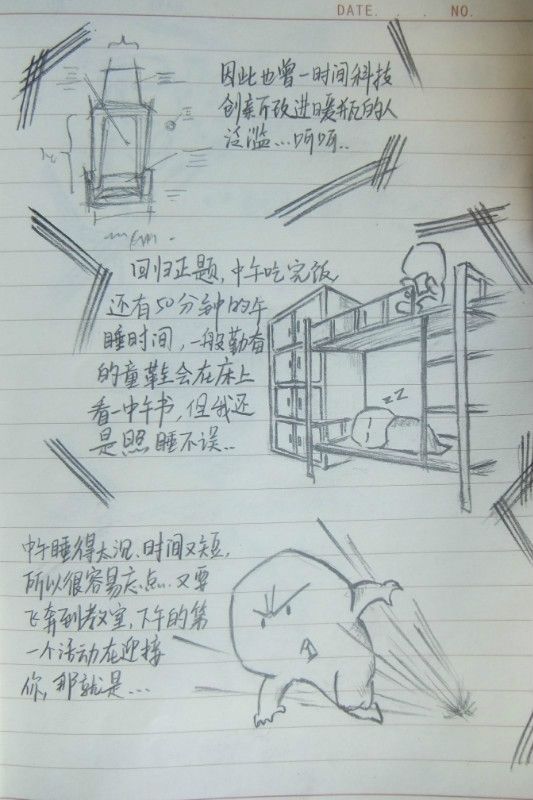 DATE. . . NO.
因此也曾一时间科技
创新所改进暖瓶的人
泛滥...呵呵..
回归正题,中午吃完饭
还有50分钟的午
睡时间,一般勤奋
的童鞋会在床上
看一中午书,但我还
是照睡不误..
zz
中午睡得太沉、时间又短,
所以很容易忘点..又要
飞奔到教室,下午的第
一个活动在迎接
你,那就是...